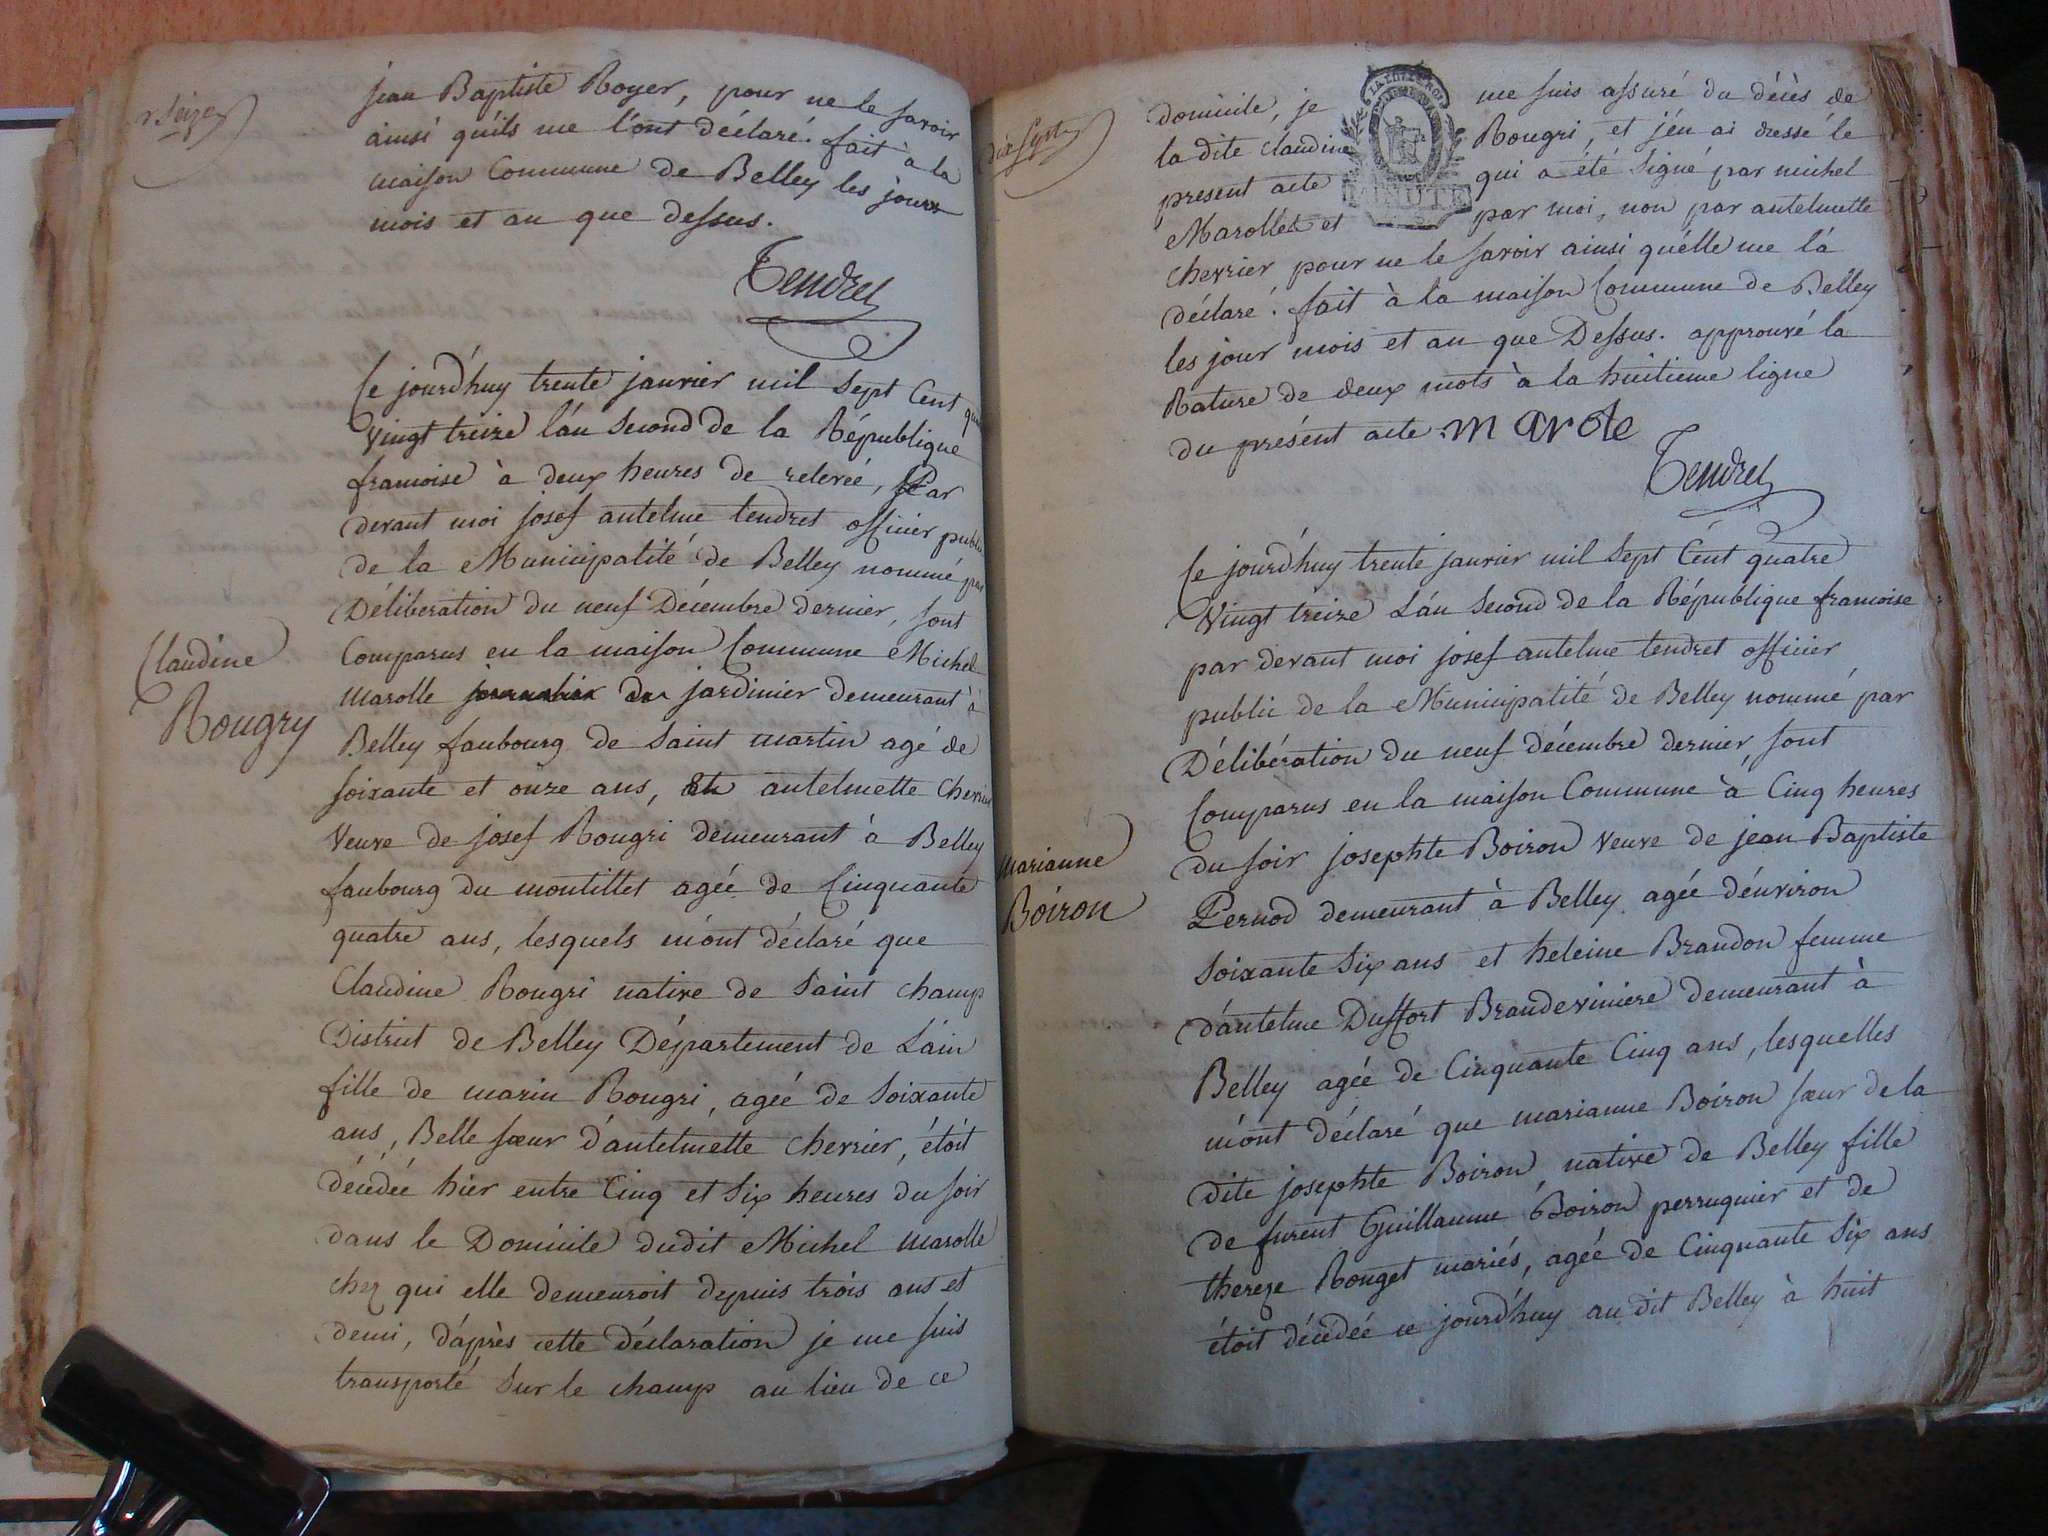 r Seize
jean Baptiste Royer, pour ne le savoir
ainsi qu'ils me l'ont déclaré. fait à la
maison Commune de Belley les jours
mois et an que dessus.
Tendret
Ce jourd'huy trente janvier mil Sept Cent
Vingt treize l'an Second de la République
francoise à deux heures de relevée, Par
devant moi josef antelme tendret officier public
de la Municipalité de Belley nommé par
Déliberation du neuf Décembre dernier, sont
Comparus en la maison Commune Michel
marolle jardinier demeurant à
Belley faubourg de Saint martin agé de
soixante et onze ans, et antelmette Chevrier
Veuve de josef Rougri demeurant à Belley
faubourg du montillet agée de Cinquante
quatre ans, lesquels m'ont déclaré que
Claudine Rougri native de Saint champ
District de Belley Département de L'ain
fille de marin Rougri, agée de Soixante
ans, Belle sœur d'antelmette chevrier, étoit
décédée hier entre Cinq et Six heures du soir
dans le Domicile dudit Michel marolle
chez qui elle demeuroit depuis trois ans et
demi, d'après cette déclaration je me suis
transporté Sur le champ au lieu de ce
Claudine
Rougry
dix Sept
domicile, je me suis assuré du décès de
la dite claudine Rougri, et j'en ai dressé le
present acte qui a été Signé par michel
Marolle et par moi, non par antelmette
chevrier pour ne le savoir ainsi qu'elle me l'a
déclaré. fait à la maison Commune de Belley
les jour mois et an que Dessus. approuvé la
Rature de deux mots à la huitieme ligne
du présent acte. marole
Tendret
Ce jourd'huy trente janvier mil Sept Cent quatre
Vingt treize L'an Second de la République francoise
par devant moi josef antelme tendret officier
public de la Municipalité de Belley nommé par
Délibération du neuf décembre dernier, sont
Comparus en la maison Commune à Cinq heures
du soir josephte Boiron Veuve de jean Baptiste
Pernod demeurant à Belley agée d'environ
Soixante Six ans et heleine Brandon femme
d'antelme Duffort Brandeviniere demeurant à
Belley agée de Cinquante Cinq ans, lesquelles
m'ont déclaré que marianne Boiron sœur de la
dite josephte Boiron native de Belley fille
de furent Guillaume Boiron perruquier et de
thereze Rouget mariés, agée de Cinquante Six ans
étoit décédée ce jourd'huy au dit Belley à huit
Marianne
Boiron